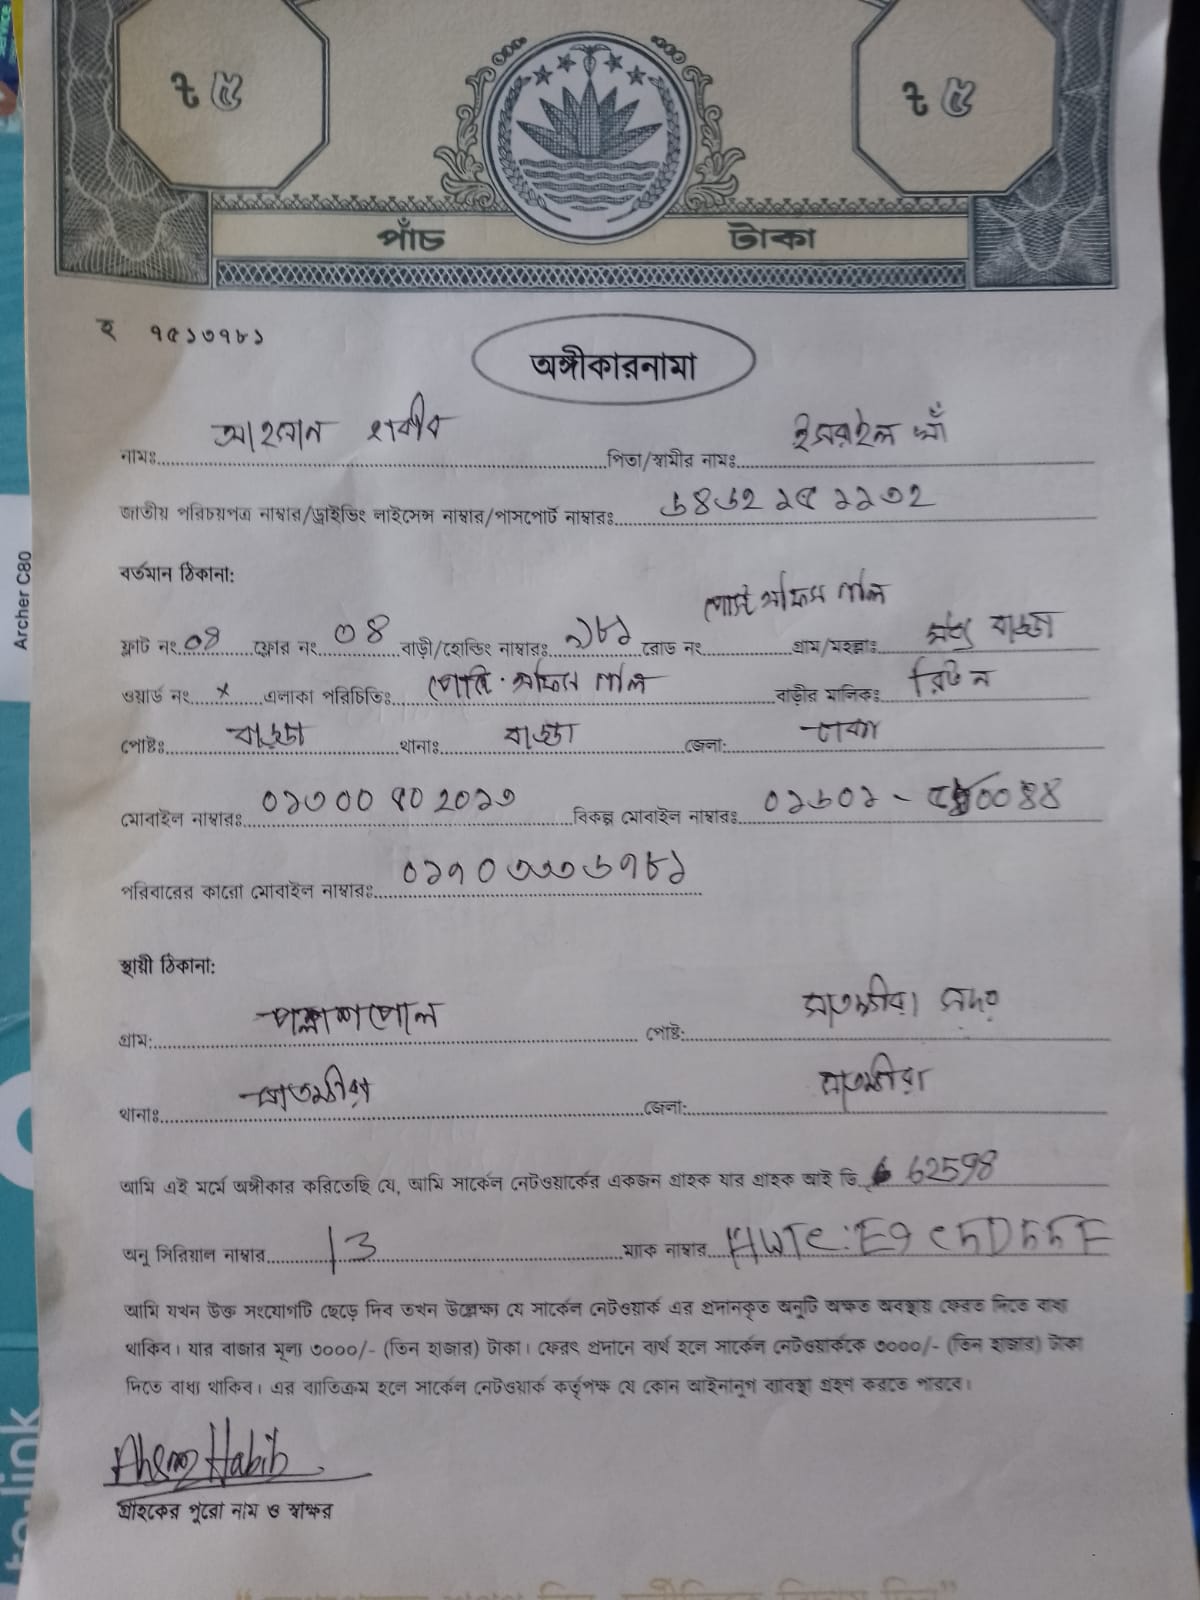 ট ৫ ট ৫
পাঁচ টাকা
হ ৭৫১৩৭৮১
অঙ্গীকারনামা
নামঃ আহসান হাবীব পিতা/স্বামীর নামঃ ইসরাইল খাঁ
জাতীয় পরিচয়পত্র নাম্বার/ড্রাইভিং লাইসেন্স নাম্বার/পাসপোর্ট নাম্বারঃ ৬৪৬২১৫১১৩২
বর্তমান ঠিকানা:
পোস্ট অফিস গলি
ফ্লাট নং ০৪ ফ্লোর নং ০৪ বাড়ী/হোল্ডিং নাম্বারঃ ৯৮১ রোড নং গ্রাম/মহল্লাঃ মধ্য বাড্ডা
ওয়ার্ড নং × এলাকা পরিচিতিঃ পোস্ট অফিস গলি বাড়ীর মালিকঃ রিটন
পোষ্টঃ বাড্ডা থানাঃ বাড্ডা জেলা: ঢাকা
মোবাইল নাম্বারঃ ০১৩০০৪০২০১৩ বিকল্প মোবাইল নাম্বারঃ ০১৬০১-
পরিবারের কারো মোবাইল নাম্বারঃ ০১৭০৩৩৩৬৭৮১
স্থায়ী ঠিকানা:
গ্রাম: পলাশপোল পোষ্ট: সাতক্ষীরা সদর
থানাঃ সাতক্ষীরা জেলা: সাতক্ষীরা
আমি এই মর্মে অঙ্গীকার করিতেছি যে, আমি সার্কেল নেটওয়ার্কের একজন গ্রাহক যার গ্রাহক আই ডি. 62598
অনু সিরিয়াল নাম্বার 13 ম্যাক নাম্বার HWTC:
আমি যখন উক্ত সংযোগটি ছেড়ে দিব তখন উল্লেক্ষ্য যে সার্কেল নেটওয়ার্ক এর প্রদানকৃত অনুটি অক্ষত অবস্থায় ফেরত দিতে বাধ্য
থাকিব। যার বাজার মূল্য ৩০০০/- (তিন হাজার) টাকা। ফেরৎ প্রদানে ব্যর্থ হলে সার্কেল নেটওয়ার্ককে ৩০০০/- (তিন হাজার) টাকা
দিতে বাধ্য থাকিব। এর ব্যতিক্রম হলে সার্কেল নেটওয়ার্ক কর্তৃপক্ষ যে কোন আইনানুগ ব্যবস্থা গ্রহণ করতে পারবে।
Ahsan Habib
গ্রাহকের পুরো নাম ও স্বাক্ষর
Archer C80
tp-link